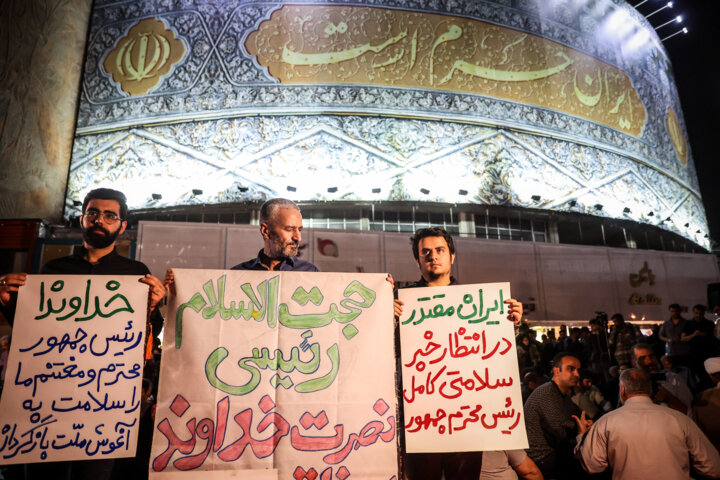 ایران حرم است
خداوندا
رئیس جمهور
محترم و مغتنم ما
را سلامت به
آغوش ملّت بازگردان
حجت الاسلام
رئیسی
نصرت خداوند
ایران مقتدر
در انتظار خبر
سلامتی کامل
رئیس محترم جمهور